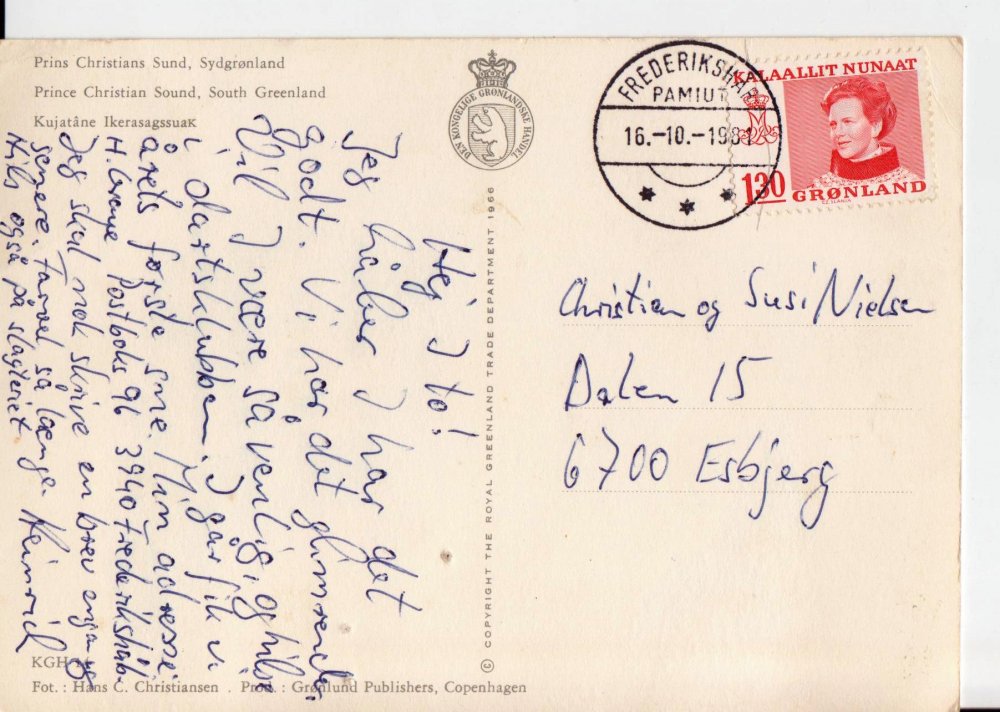 Prins Christians Sund, Sydgrønland
Prince Christian Sound, South Greenland
Kujatâne Ikerasagssuaĸ
DEN KONGELIGE GRØNLANDSKE HANDEL
FREDERIKSHÅB
PAMIUT
16.-10.-1981
KALAALLIT NUNAAT
130
GRØNLAND
CZ. SLANIA
Hej I to!
Jeg håber I har det
godt. Vi har det glimrende.
Vil I være så venlig, og hilse
i dartsklubben. I går fik vi
årets første sne. Min adresse:
H. Postboks 96 3940 Frederikshåb.
Jeg skal nok skrive en brev engang
senere. Farvel så længe. Heinrich
Hils også på slagteriet
COPYRIGHT THE ROYAL GREENLAND TRADE DEPARTMENT 1966
Christian og Susi Nielsen
Dalen 15
6700 Esbjerg
KGH
Fot. : Hans C. Christiansen . Prod. : Grønlund Publishers, Copenhagen